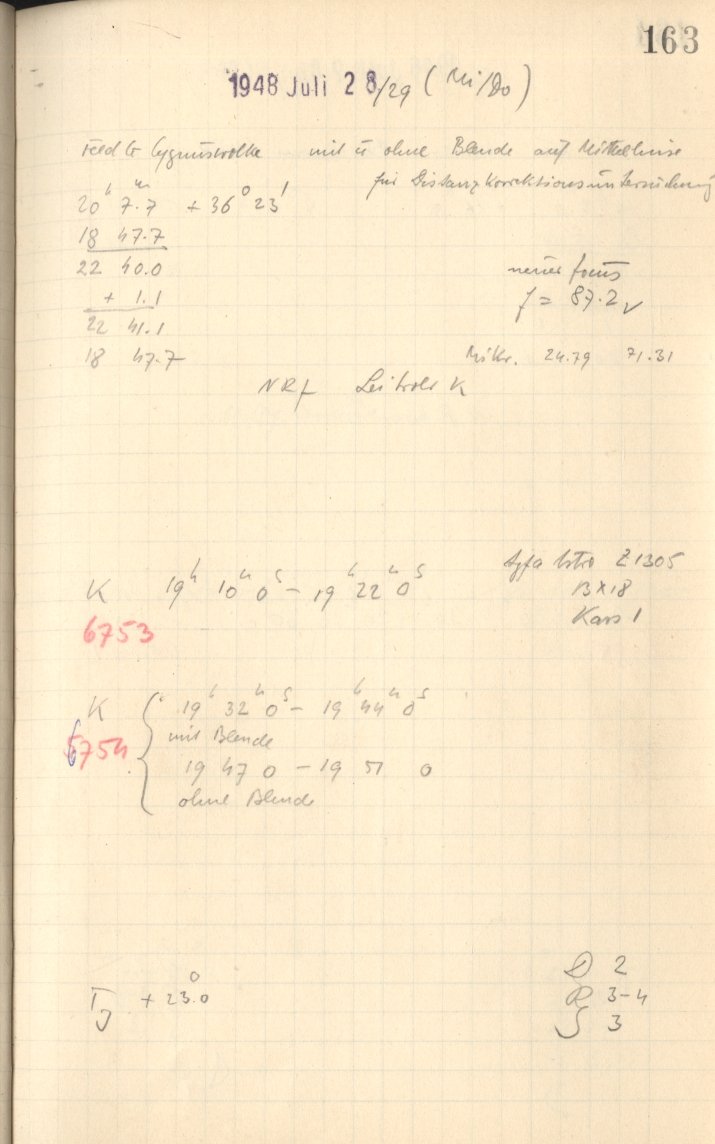 163
1948 Juli 28/29 (Mi/Do)
Feld Cygnuswolke mit u ohne Blende auf Mittellinse
für Distanzkorrektionsuntersuchung
20h 7m.7 + 36° 23'
18 47.7
22 40.0
+ 1.1
22 41.1
18 47.7
neuer focus
f = 87.2
Mikr. 24.79 71.31
NRf Leitrohr K
K 19h 10m 0s – 19h 22m 0s
6753
Agfa Astro Z1305
13x18
Kass 1
K 19h 32m 0s – 19h 44m 0s
6754
mit Blende
19 47 0 – 19 51 0
ohne Blende
TJ + 23°.0
D 2
R 3-4
S 3